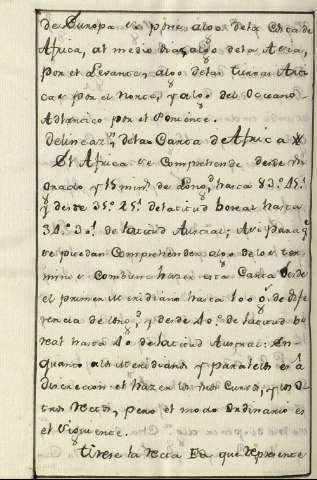 de Europa se pone algo de la Costa de
Africa, al medio dia, algo de la Asia,
por el Levante, algo de las tierras Arti
cas por el Norte, y algo del Oceano
Atlantico por el Poniente.
Delineaz.n de la Carta de Africa
El Africa se Comprehende desde un
grado y 15 min.s de Long.d hasta 83°.45'.
y desde 35°.25'. de latitud boreal hasta
34°.30'. de latitud Austral; Assi para q.e
se puedan Comprehender algo de los ter
minos Combiene hazer esta Carta desde
el primer Meridiano hasta 100 g.s de dife
rencia de Long.d y desde 40.° de latitud bo
real hasta 40 de latitud Austral: En
quanto a los Meridianos y paralelos es á
discrecion el hazer los unos Curvos, y los o
tros Rectos, pero el modo Ordinario es
el Siguiente.
Tirese la Recta Ed que represente